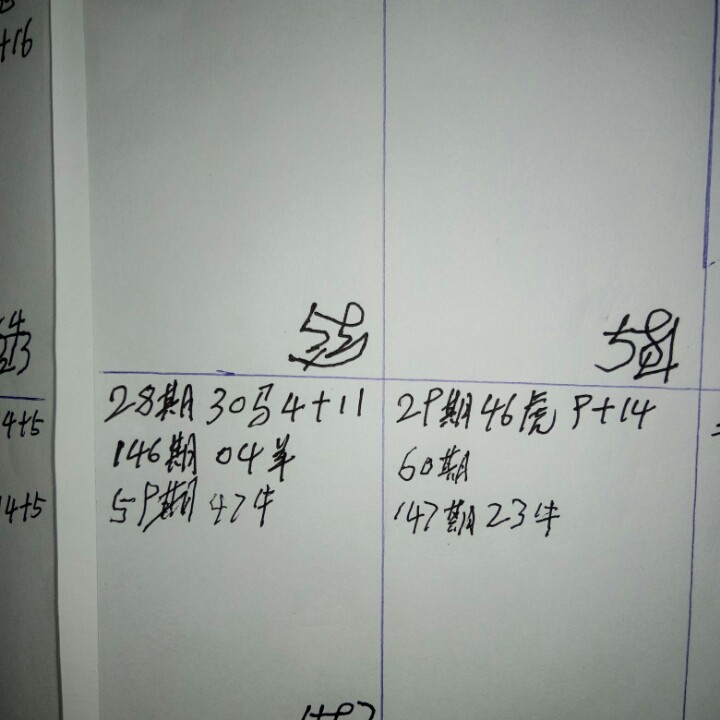 +16
4+5
28期 30马 4+11
146期 04羊
59期 47牛
29期 46虎 9+14
60期
147期 23牛
14+5